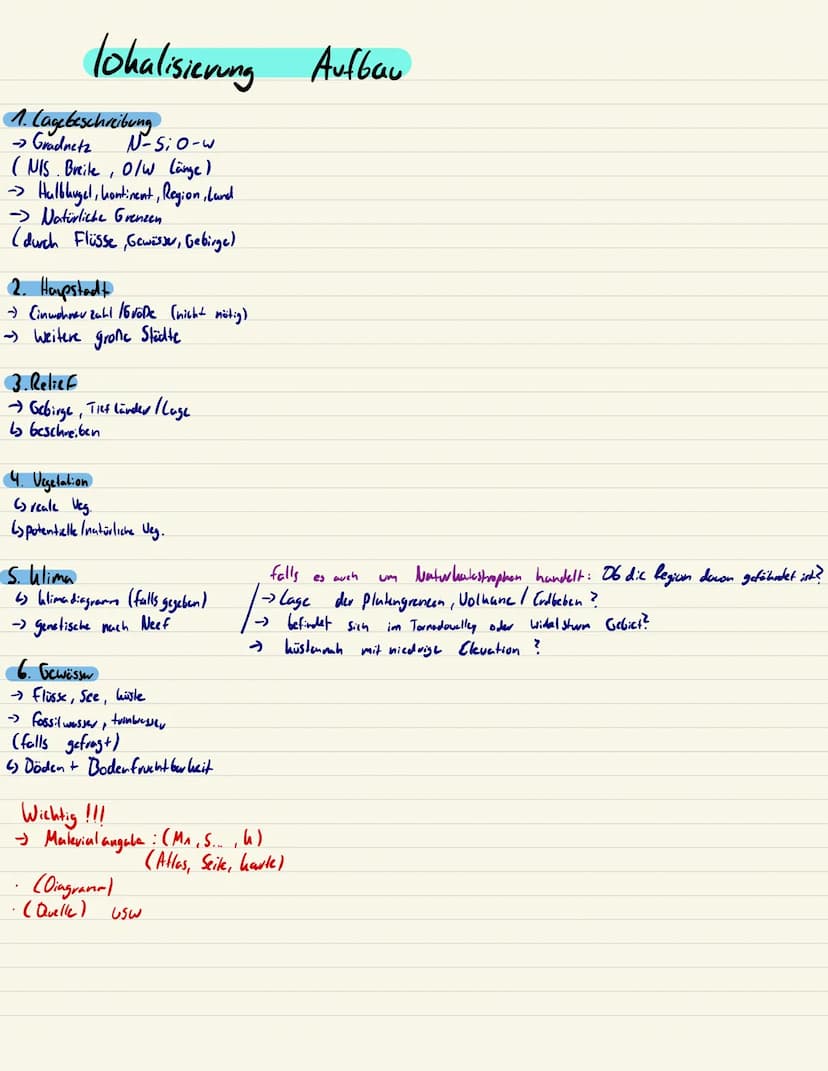 Lokalisierung Aufbau
1. Lagebeschreibung
→ Gradnetz N-S; O-W
(N/S. Breite, O/W Länge)
→ Halbkugel, kontinent, Region, Land
→ Natürliche Grenzen
(durch Flüsse, Gewässer, Gebirge)
2. Haupstadt
→ Einwohnerzahl/Größe (nicht nötig)
→ Weitere große Städte
3. Relief
→ Gebirge, Tiefländer/Lage
↳ beschreiben
4. Vegetation
↳ reale Veg.
↳ potentielle/natürliche Veg.
5. Klima
↳ klimadiagramm (falls gegeben)
→ genetische nach Neef
falls es auch um Naturkatastrophen handelt: Ob die Region davon gefährdet ist?
→ Lage der Plattengrenzen, Vulkane / Erdbeben?
→ befindet sich im Tornadovalley oder Gebiet?
→ küstennah mit niedrige Elevation?
6. Gewässer
→ Flüsse, See, küste
→ Fossilwasser, trinkwasser
(falls gefragt)
↳ Böden + Bodenfruchtbarkeit
Wichtig !!!
→ Materialangabe: (M1, S..., )
(Atlas, Seite, karte)
· (Diagramm)
· (Quelle) usw